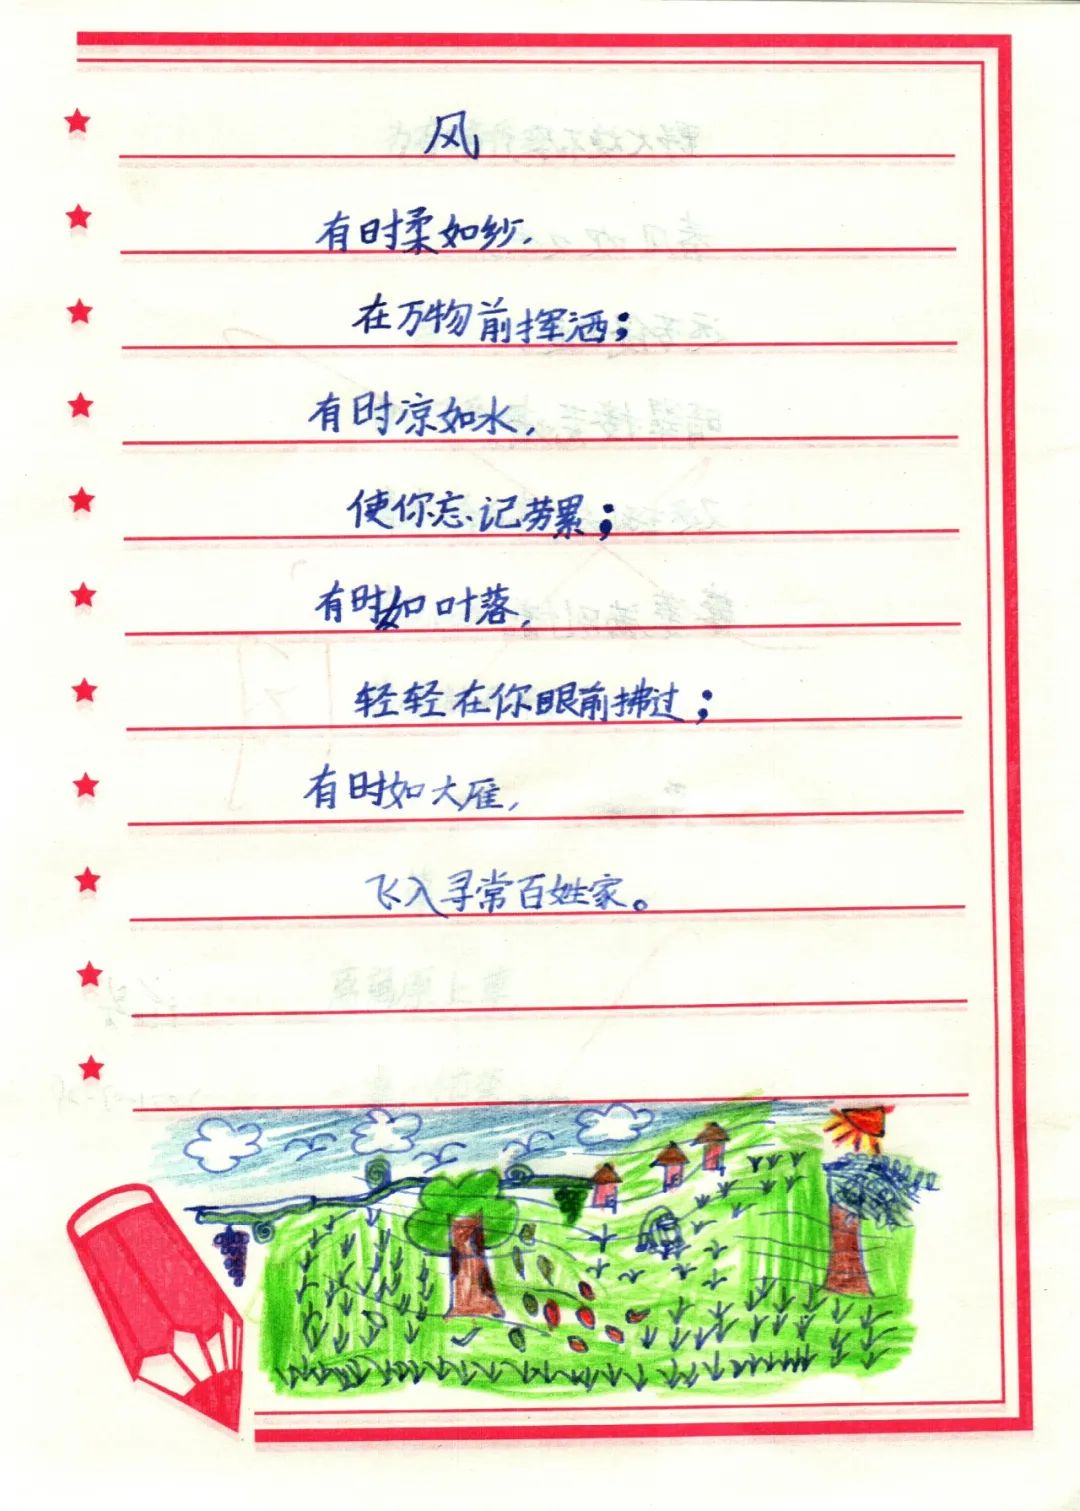 风
有时柔如纱，
在万物前挥洒；
有时凉如水，
使你忘记劳累；
有时如叶落，
轻轻在你眼前拂过；
有时如大雁，
飞入寻常百姓家。